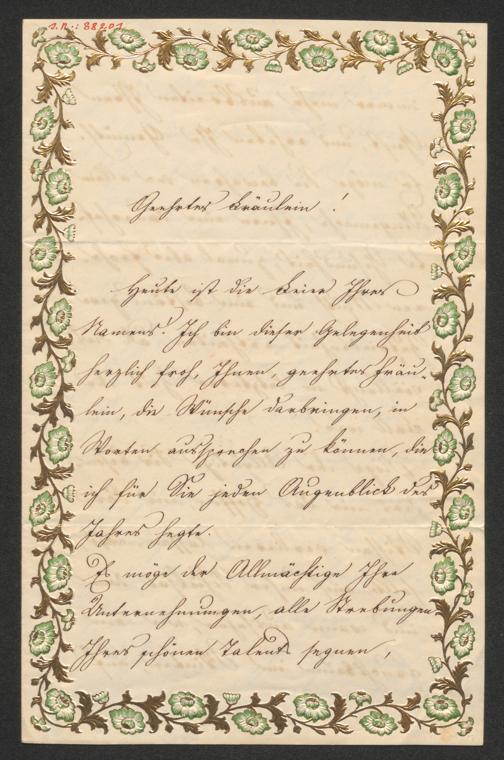 I. N.: 88201
Geehrtes Fräulein!
Heute ist die Feier Ihres
Namens! Ich bin dieser Gelegenheit
herzlich froh, Ihnen, geehrtes Fräu-
lein, die Wünsche darbringen, in
Worten aussprechen zu können, die
ich für Sie jeden Augenblick des
Jahres hegte.
Es möge der Allmächtige Ihre
Unternehmungen, alle Strebungen
Ihres schönen Talents segnen,